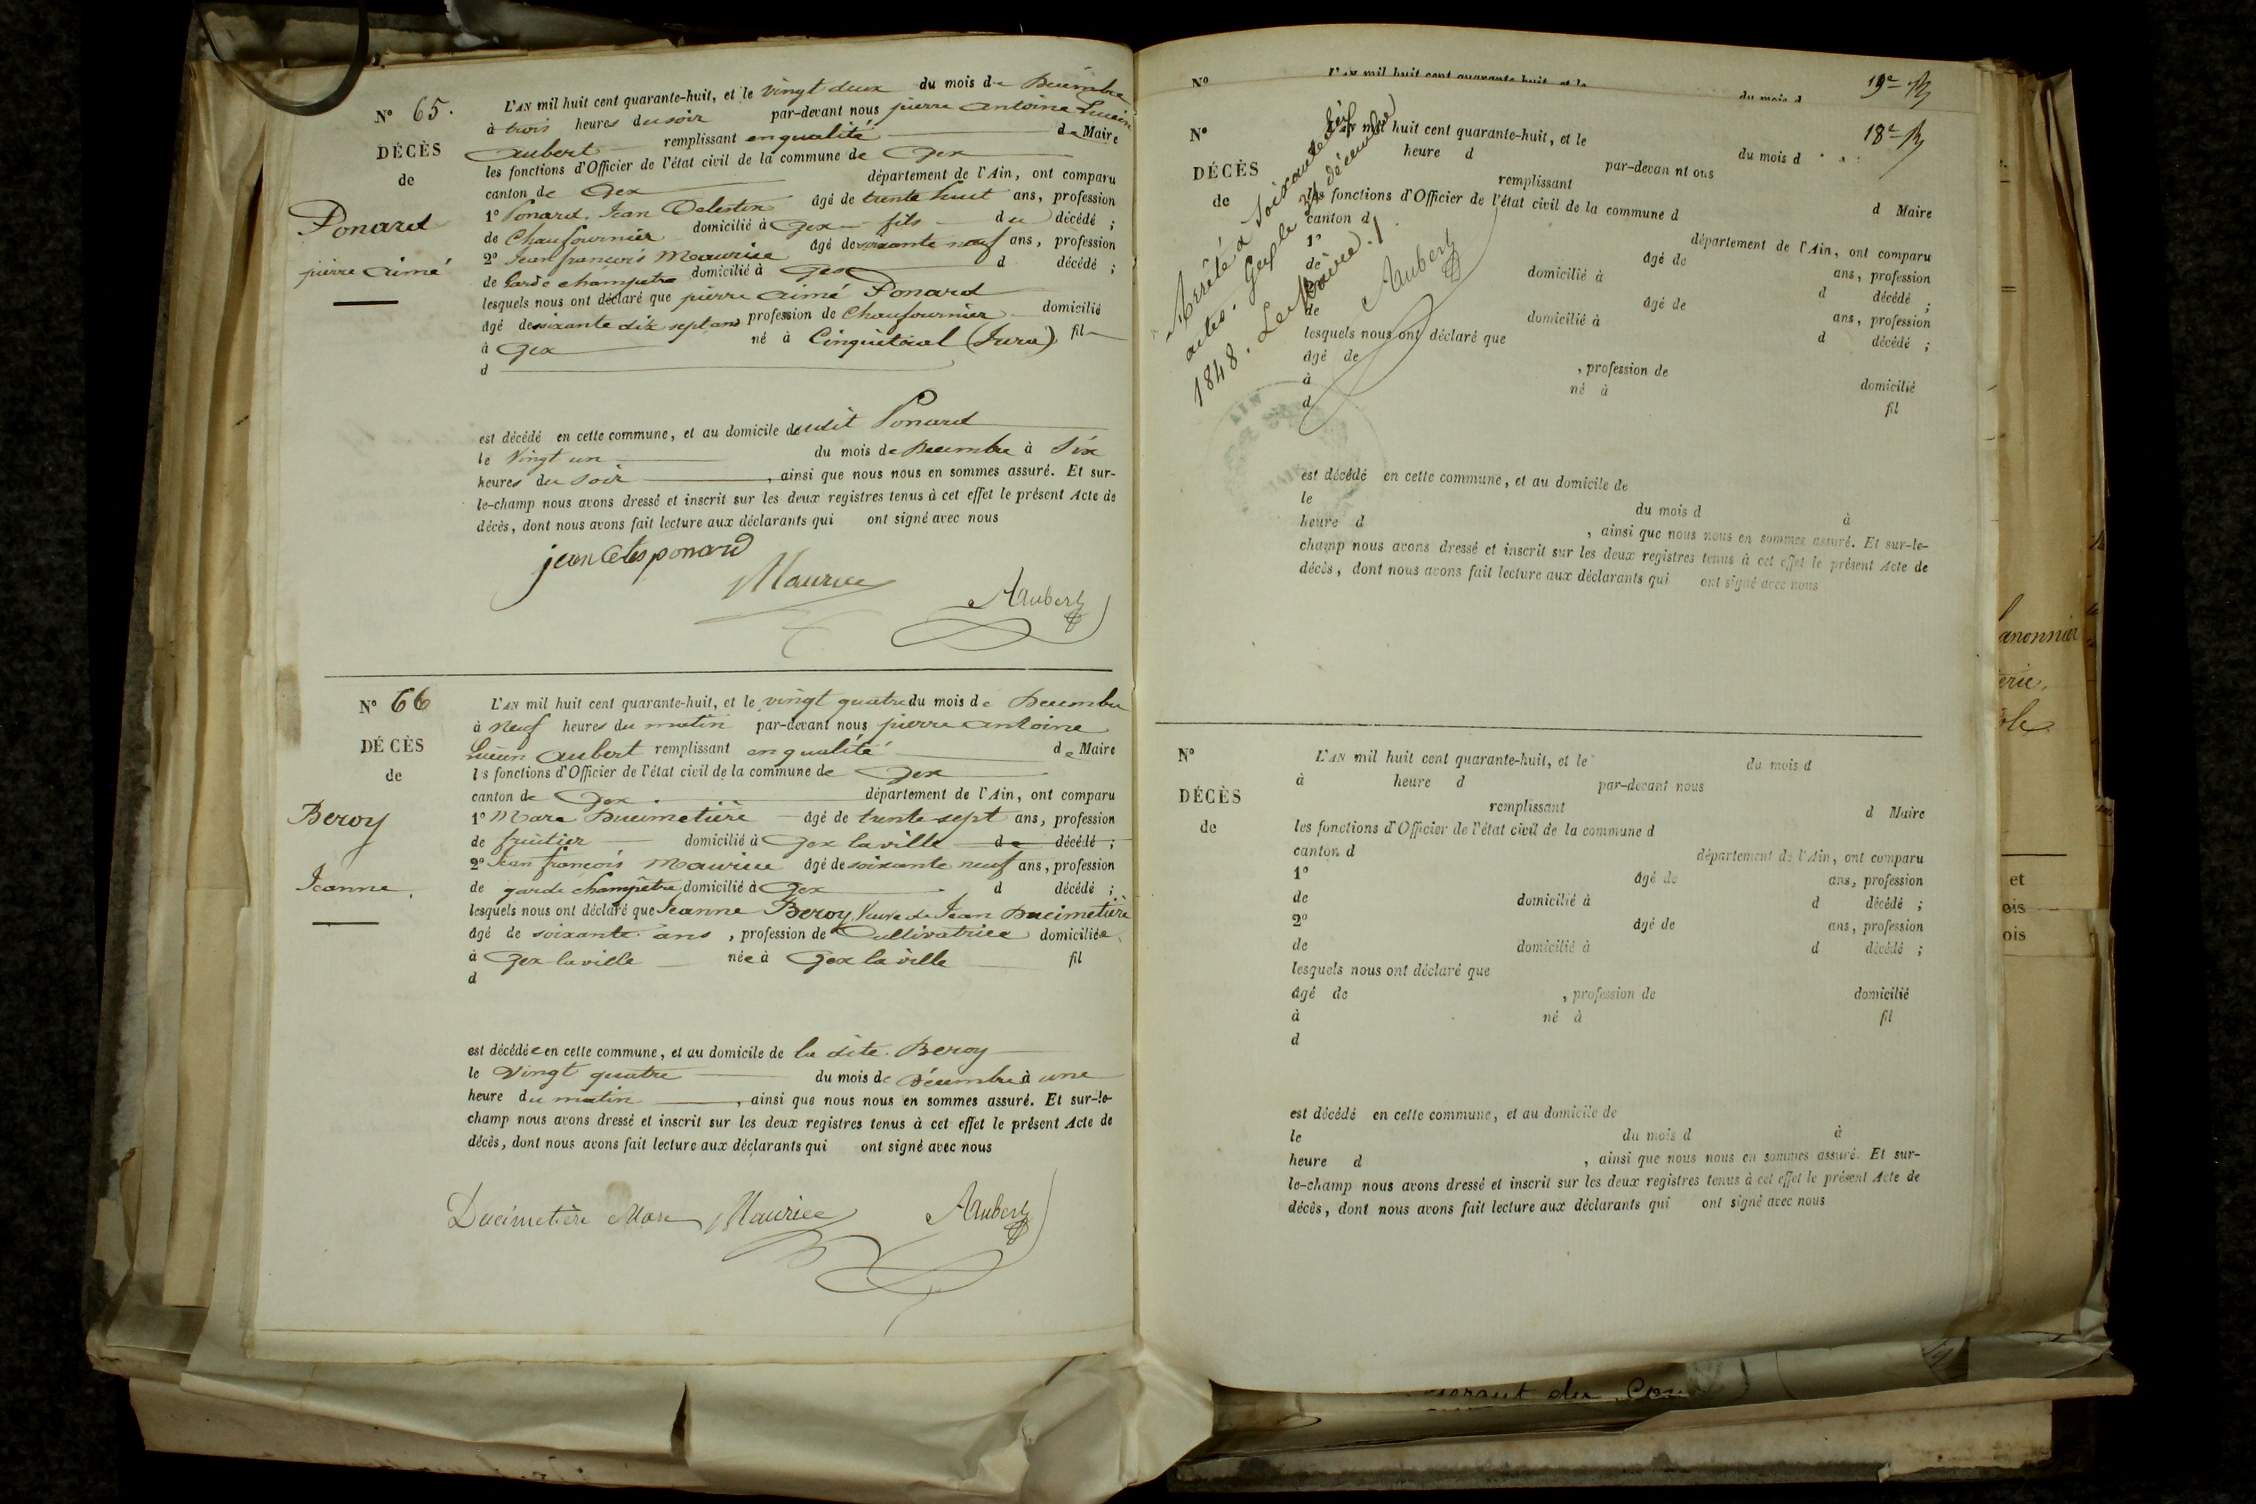 N° 65.
DÉCÈS
de
Ponard
pierre aimé
L'AN mil huit cent quarante-huit, et le vingt deux du mois de Décembre
à trois heures du soir par-devant nous pierre antoine Lucien
aubert remplissant en qualité de Maire
les fonctions d'Officier de l'état civil de la commune de Gex
canton de Gex département de l'Ain, ont comparu
1° Ponard, Jean Celestin âgé de trente huit ans, profession
de Chaufournier domicilié à Gex fils du décédé ;
2° Jean françois Maurice âgé de soixante neuf ans, profession
de Garde champetre domicilié à Gex d décédé ;
lesquels nous ont déclaré que pierre aimé Ponard
âgé de soixante dix sept ans profession de Chaufournier domicilié
à Gex né à Cinquétral (Jura) fil
d
est décédé en cette commune, et au domicile dudit Ponard
le Vingt un du mois de Décembre à Six
heures du soir, ainsi que nous nous en sommes assuré. Et sur-
le-champ nous avons dressé et inscrit sur les deux registres tenus à cet effet le présent Acte de
décès, dont nous avons fait lecture aux déclarants qui ont signé avec nous
jean Celes ponard
Maurice
Aubert
N° 66
DÉCÈS
de
Beroy
Jeanne
L'AN mil huit cent quarante-huit, et le vingt quatre du mois de Décembre
à neuf heures du matin par-devant nous pierre antoine
Lucien aubert remplissant en qualité de Maire
l s fonctions d'Officier de l'état civil de la commune de Gex
canton de Gex département de l'Ain, ont comparu
1° Marc Ducimetière âgé de trente sept ans, profession
de fruitier domicilié à Gex la ville de décédé ;
2° Jean françois Maurice âgé de soixante neuf ans, profession
de garde champêtre domicilié à Gex d décédé ;
lesquels nous ont déclaré que Jeanne Beroy, Veuve de Jean Ducimetière
âgé de soixante ans, profession de Cultivatrice domiciliée
à Gex la ville née à Gex la ville fil
d
est décédée en cette commune, et au domicile de la dite Beroy
le Vingt quatre du mois de Décembre à une
heure du matin, ainsi que nous nous en sommes assuré. Et sur-le-
champ nous avons dressé et inscrit sur les deux registres tenus à cet effet le présent Acte de
décès, dont nous avons fait lecture aux déclarants qui ont signé avec nous
Ducimetière Marc Maurice Aubert
N° L'AN mil huit cent quarante-huit, et le du mois d 19e
N° L'AN mil huit cent quarante-huit, et le du mois d 18e
DÉCÈS
de
heure d par-devan nt ous
remplissant d Maire
les fonctions d'Officier de l'état civil de la commune d
canton d département de l'Ain, ont comparu
1° âgé de ans, profession
de domicilié à d décédé ;
âgé de ans, profession
de domicilié à d décédé ;
lesquels nous ont déclaré que
âgé de , profession de domicilié
à né à fil
d
Arrêté à soixante six
actes. Gex le 31 décembre
1848. Le Maire
Aubert
AIN
est décédé en cette commune, et au domicile de
le du mois d à
heure d , ainsi que nous nous en sommes assuré. Et sur-le-
champ nous avons dressé et inscrit sur les deux registres tenus à cet effet le présent Acte de
décès, dont nous avons fait lecture aux déclarants qui ont signé avec nous
N°
DÉCÈS
de
L'AN mil huit cent quarante-huit, et le du mois d
à heure d par-devant nous
remplissant d Maire
les fonctions d'Officier de l'état civil de la commune d
canton d département de l'Ain, ont comparu
1° âgé de ans, profession
de domicilié à d décédé ;
2° âgé de ans, profession
de domicilié à d décédé ;
lesquels nous ont déclaré que
âgé de , profession de domicilié
à né à fil
d
est décédé en cette commune, et au domicile de
le du mois d à
heure d , ainsi que nous nous en sommes assuré. Et sur-
le-champ nous avons dressé et inscrit sur les deux registres tenus à cet effet le présent Acte de
décès, dont nous avons fait lecture aux déclarants qui ont signé avec nous
anonnier
et
ois
ois